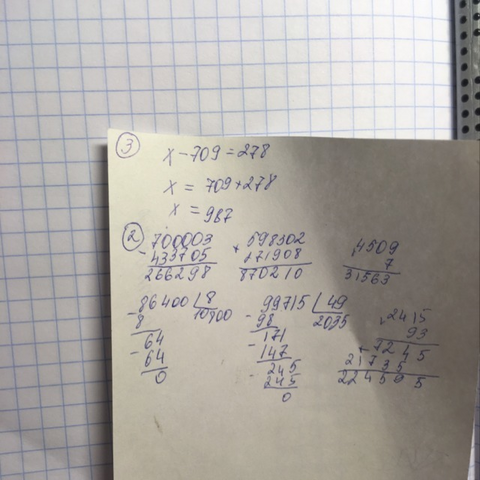 ③ x - 709 = 278
x = 709 + 278
x = 987
② - 700003
433705
266298
+ 598302
271908
870210
× 4509
7
31563
- 86400 | 8
8 10800
- 64
64
0
- 99715 | 49
98 2035
- 171
147
- 245
245
0
× 2415
93
+ 7245
21735
224595